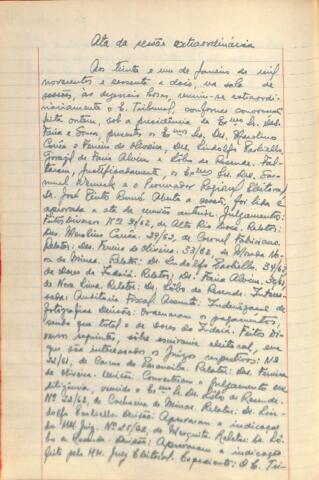 Ata da sessão extraordinária
Aos trinta e um de janeiro de mil
novecentos e sessenta e dois, na sala de
sessões, às dezesseis horas, reuniu-se extraordi-
nàriamente o E. Tribunal, conforme convocação
feita ontem, sob a presidência do Exmo Sr. Des.
Faria e Sousa, presentes os Exmos Srs. Des.
e Ferreira de Oliveira, Drs. Lindolfo
Gonzaga de Faria Alvim e Lobo de Resende. Fal-
taram, justificadamente, os Exmos Srs. Drs. Sa-
muel Werneck e o Procurador Regional Eleitoral
Dr. José Pinto Renó. Aberta a sessão, foi lida e
aprovada a ata da reunião anterior. Julgamentos:
Feitos Diversos Nº 24/62, de Alto Rio Doce. Relator:
Des. 29/62, de Coronel Fabriciano.
Relator: Des. Ferreira de Oliveira. 33/62, de Morada No-
va de Minas. Relator: Dr. Lindolfo 34/62
de Dores do Indaiá. Relator: Dr. Faria Alvim.
de Nova Lima. Relator: Dr. Lobo de Resende. Interes-
sada: Auditoria Fiscal. Assunto: Indenização de
fotografias. Decisão: Ordenaram os pagamentos,
sendo que total o de Dores do Indaiá. Feitos Di-
versos seguintes, sôbre escrivania eleitoral, em
que são interessados os Juízos respectivos: Nº
32/61, de Carmo do Paranaíba. Relator: Des. Ferreira
de Oliveira. Decisão: Converteram o julgamento em
diligência, vencido o Exmo Sr. Dr. Lobo de Resende.
Nº 22/62, de Cachoeira de Minas. Relator: Dr. Lin-
dolfo Decisão: Aprovaram a indicação
do MM. Juiz. Nº 25/62, de Mesquita. Relator: Dr. Lo-
bo de Resende. Decisão: Aprovaram a indicação
feita pelo MM. Juiz Eleitoral. Expediente: O E. Tri-